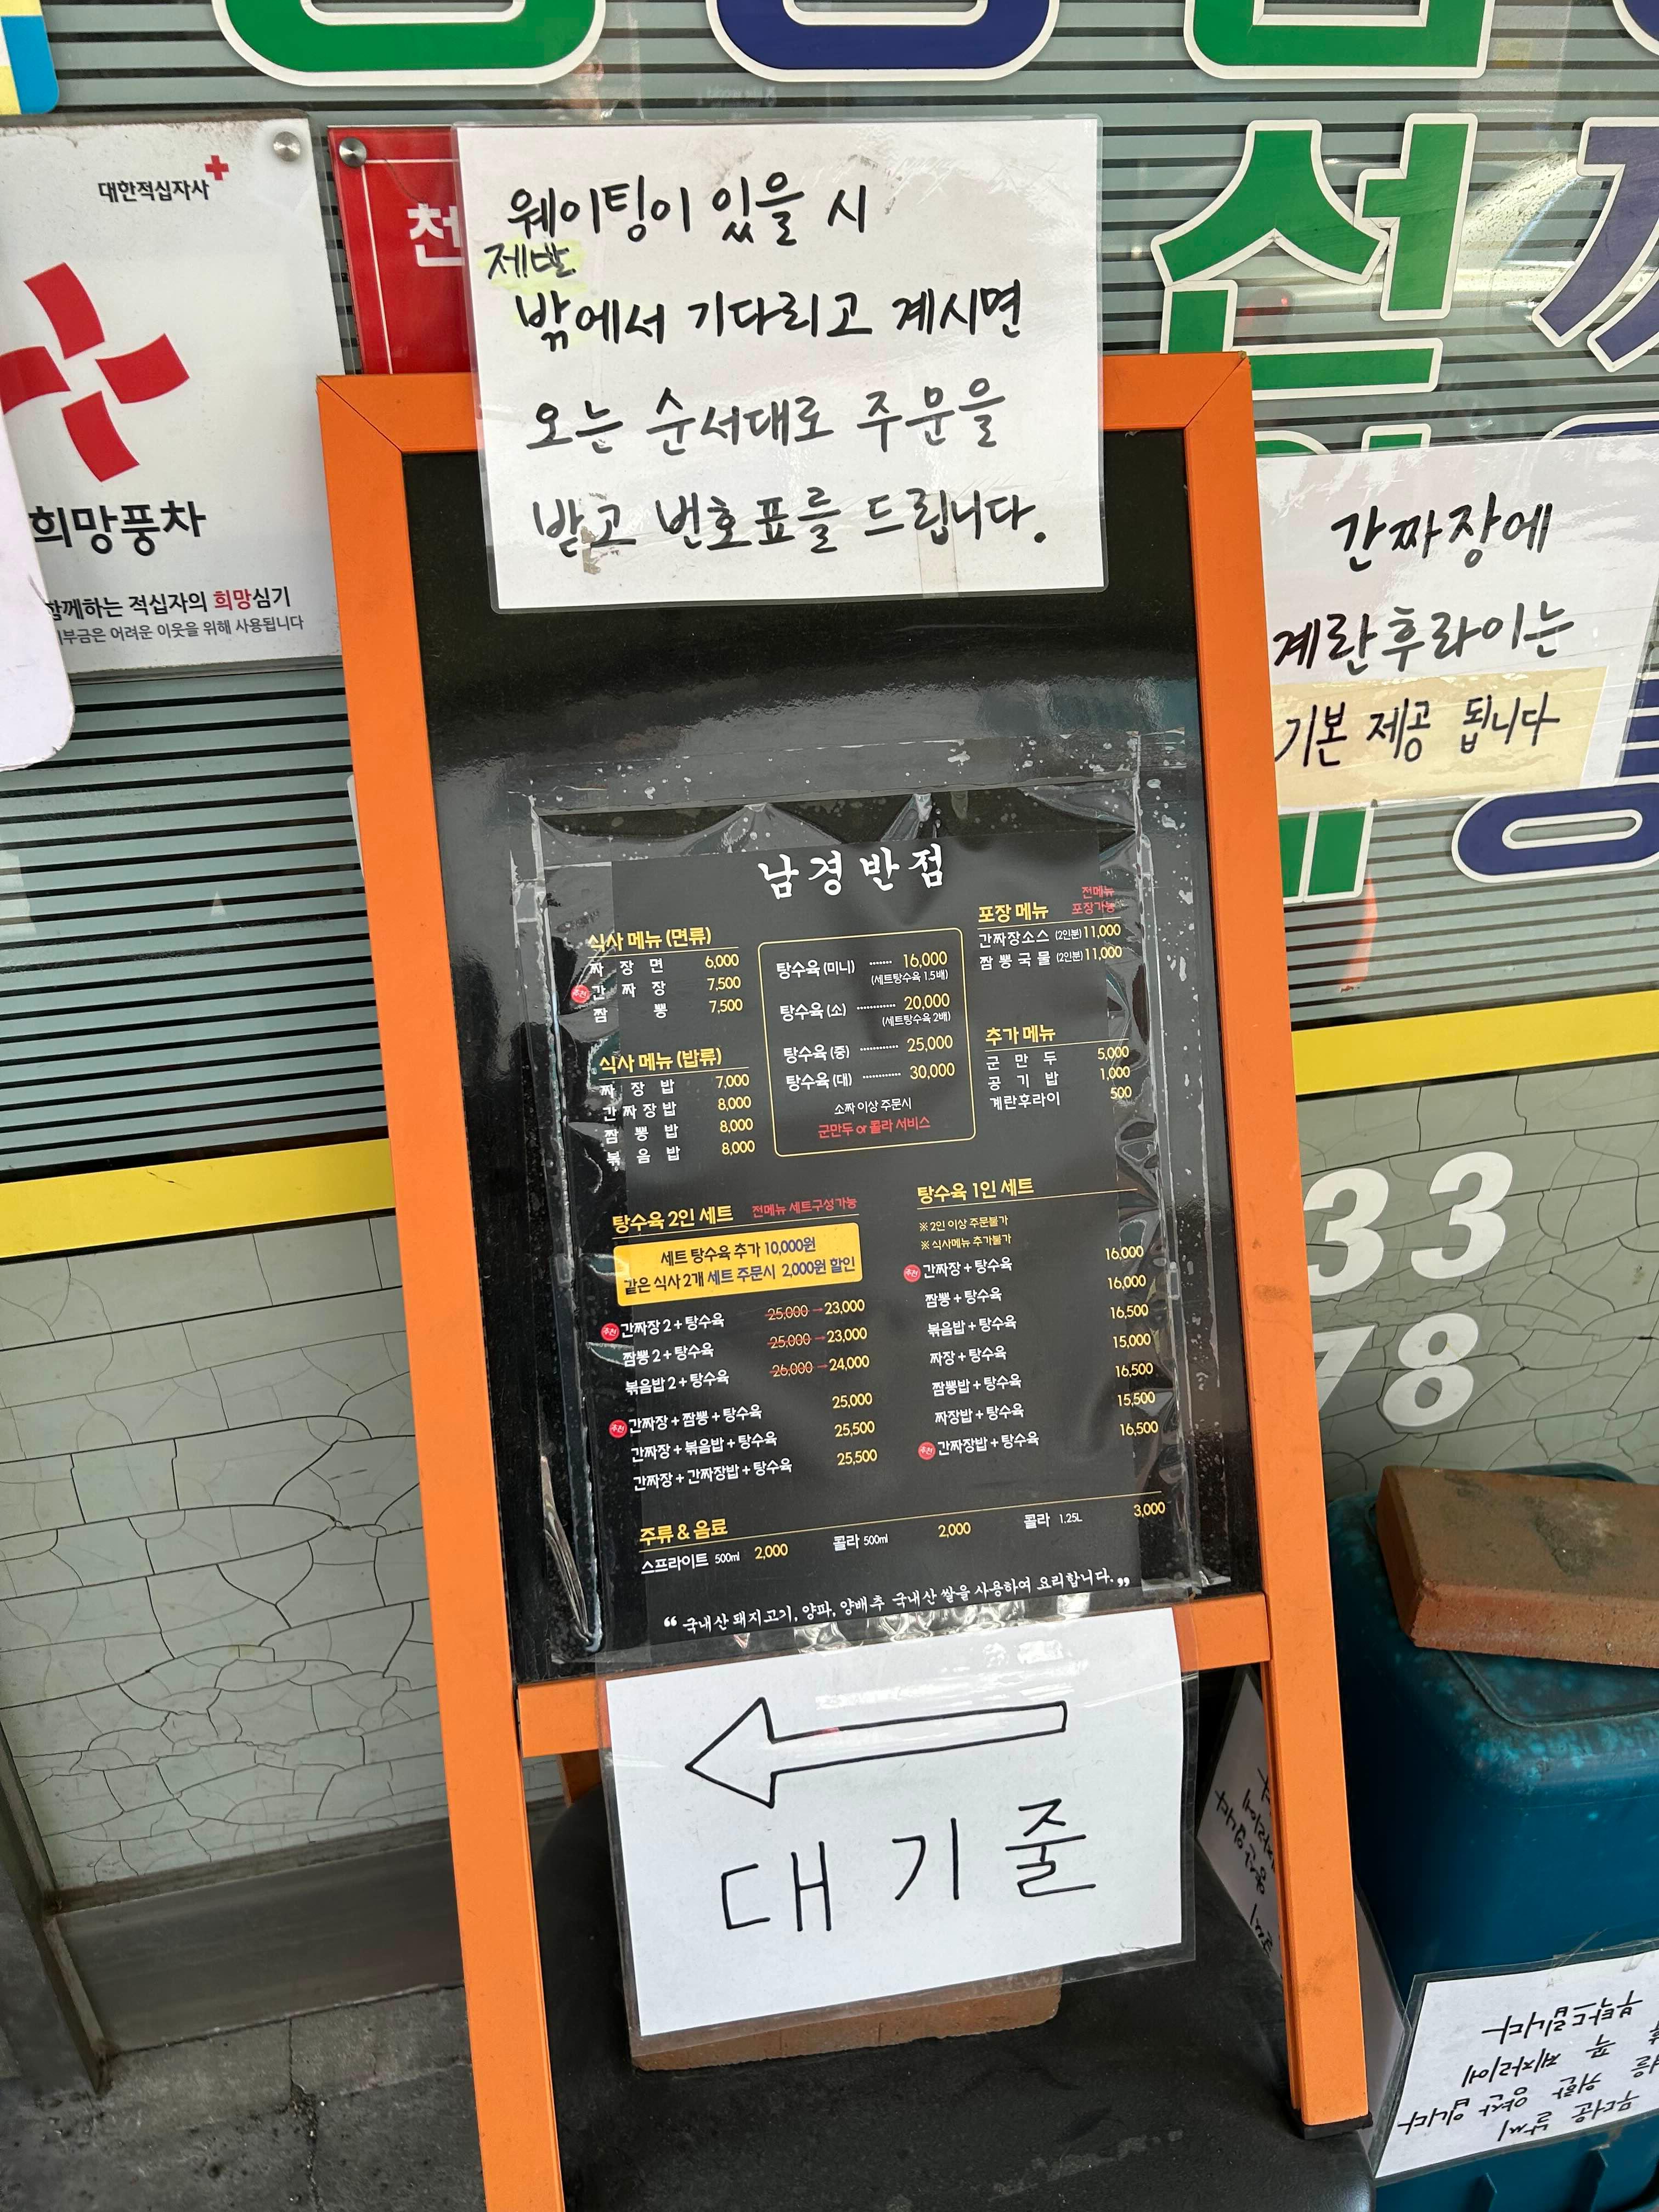 대한적십자사
희망풍차
함께하는 적십자의 희망심기
기부금은 어려운 이웃을 위해 사용됩니다
천
웨이팅이 있을 시
제발
밖에서 기다리고 계시면
오는 순서대로 주문을
받고 번호표를 드립니다.
간짜장에
계란후라이는
기본 제공 됩니다
남경반점
식사 메뉴 (면류)
짜장면 6,000
추천 간짜장 7,500
짬뽕 7,500
식사 메뉴 (밥류)
짜장밥 7,000
간짜장밥 8,000
짬뽕밥 8,000
볶음밥 8,000
탕수육 (미니) 16,000
(세트탕수육 1.5배)
탕수육 (소) 20,000
(세트탕수육 2배)
탕수육 (중) 25,000
탕수육 (대) 30,000
소짜 이상 주문시
군만두 or 콜라 서비스
포장 메뉴 전메뉴 포장가능
간짜장소스 (2인분) 11,000
짬뽕국물 (2인분) 11,000
추가 메뉴
군만두 5,000
공기밥 1,000
계란후라이 500
탕수육 2인 세트 전메뉴 세트구성가능
세트 탕수육 추가 10,000원
같은 식사 2개 세트 주문시 2,000원 할인
추천 간짜장 2 + 탕수육 25,000 → 23,000
짬뽕 2 + 탕수육 25,000 → 23,000
볶음밥 2 + 탕수육 26,000 → 24,000
추천 간짜장 + 짬뽕 + 탕수육 25,000
간짜장 + 볶음밥 + 탕수육 25,500
간짜장 + 간짜장밥 + 탕수육 25,500
탕수육 1인 세트
※ 2인 이상 주문불가
※ 식사메뉴 추가불가
추천 간짜장 + 탕수육 16,000
짬뽕 + 탕수육 16,000
볶음밥 + 탕수육 16,500
짜장 + 탕수육 15,000
짬뽕밥 + 탕수육 16,500
짜장밥 + 탕수육 15,500
추천 간짜장밥 + 탕수육 16,500
주류 & 음료
스프라이트 500ml 2,000 콜라 500ml 2,000 콜라 1.25L 3,000
“ 국내산 돼지고기, 양파, 양배추 국내산 쌀을 사용하여 요리합니다. ”
33
78
대기줄
제자리에
부탁드립니다